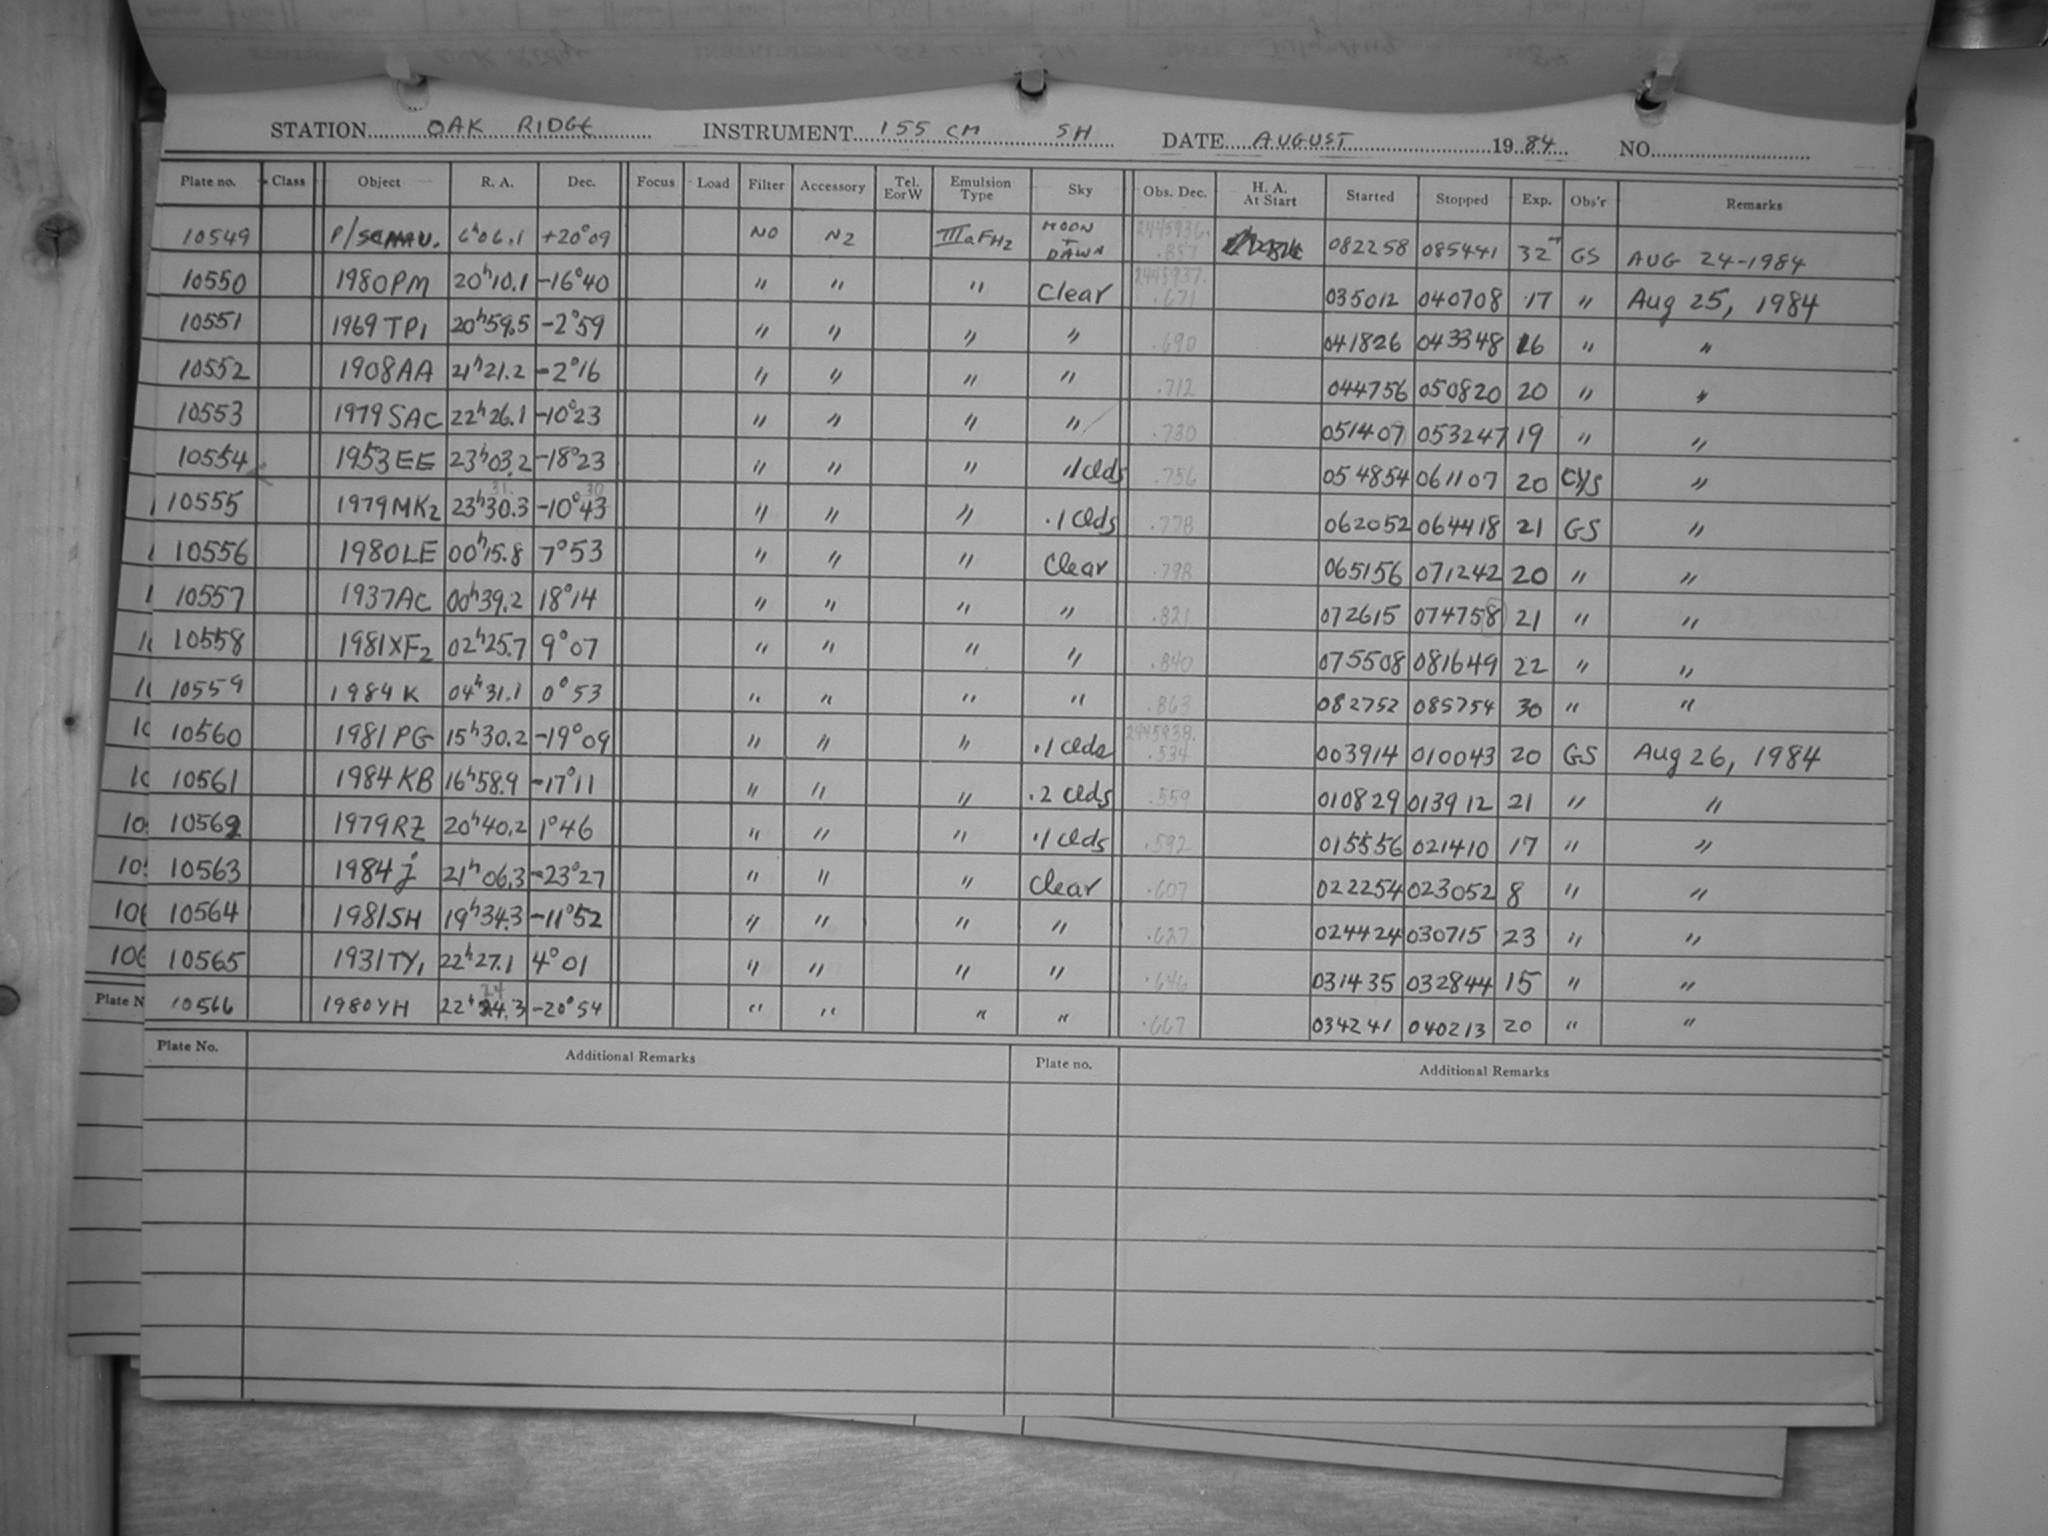 STATION OAK RIDGE INSTRUMENT 155 CM SH DATE AUGUST 1984 NO.
Plate no. Class Object R. A. Dec. Focus Load Filter Accessory Tel. E or W Emulsion Type Sky Obs. Dec. H. A. At Start Started Stopped Exp. Obs'r Remarks
10549 6h06.1 +20°09 NO N2 IIIaFH2 MOON + DAWN 2445936. .857 082258 085441 32m GS AUG 24-1984
10550 1980PM 20h10.1 -16°40 " " " Clear 2445937. .671 035012 040708 17 " Aug 25, 1984
10551 1969TP1 20h59.5 -2°59 " " " " .690 041826 043348 16 " "
10552 1908AA 21h21.2 -2°16 " " " " .712 044756 050820 20 " "
10553 1979SAC 22h26.1 -10°23 " " " " .730 051407 053247 19 " "
10554 1953EE 23h03.2 -18°23 " " " .1 Clds .756 054854 061107 20 CYS "
10555 1979MK2 23h30.3 31. -10°43 30 " " " .1 Clds .778 062052 064418 21 GS "
10556 1980LE 00h15.8 7°53 " " " Clear .798 065156 071242 20 " "
10557 1937AC 00h39.2 18°14 " " " " .821 072615 074758 21 " "
10558 1981XF2 02h25.7 9°07 " " " " .840 075508 081649 22 " "
10559 1984K 04h31.1 0°53 " " " " .863 082752 085754 30 " "
10560 1981PG 15h30.2 -19°09 " " " .1 Clds 2445938. .534 003914 010043 20 GS Aug 26, 1984
10561 1984KB 16h58.9 -17°11 " " " .2 Clds .559 010829 013912 21 " "
10562 1979RZ 20h40.2 1°46 " " " .1 Clds .592 015556 021410 17 " "
10563 1984j 21h06.3 -23°27 " " " Clear .607 022254 023052 8 " "
10564 1981SH 19h34.3 -11°52 " " " " .627 024424 030715 23 " "
10565 1931TY1 22h27.1 4°01 " " " " .646 031435 032844 15 " "
10566 1980YH 22h24.3 -20°54 " " " " .667 034241 040213 20 " "
Plate No. Additional Remarks Plate no. Additional Remarks